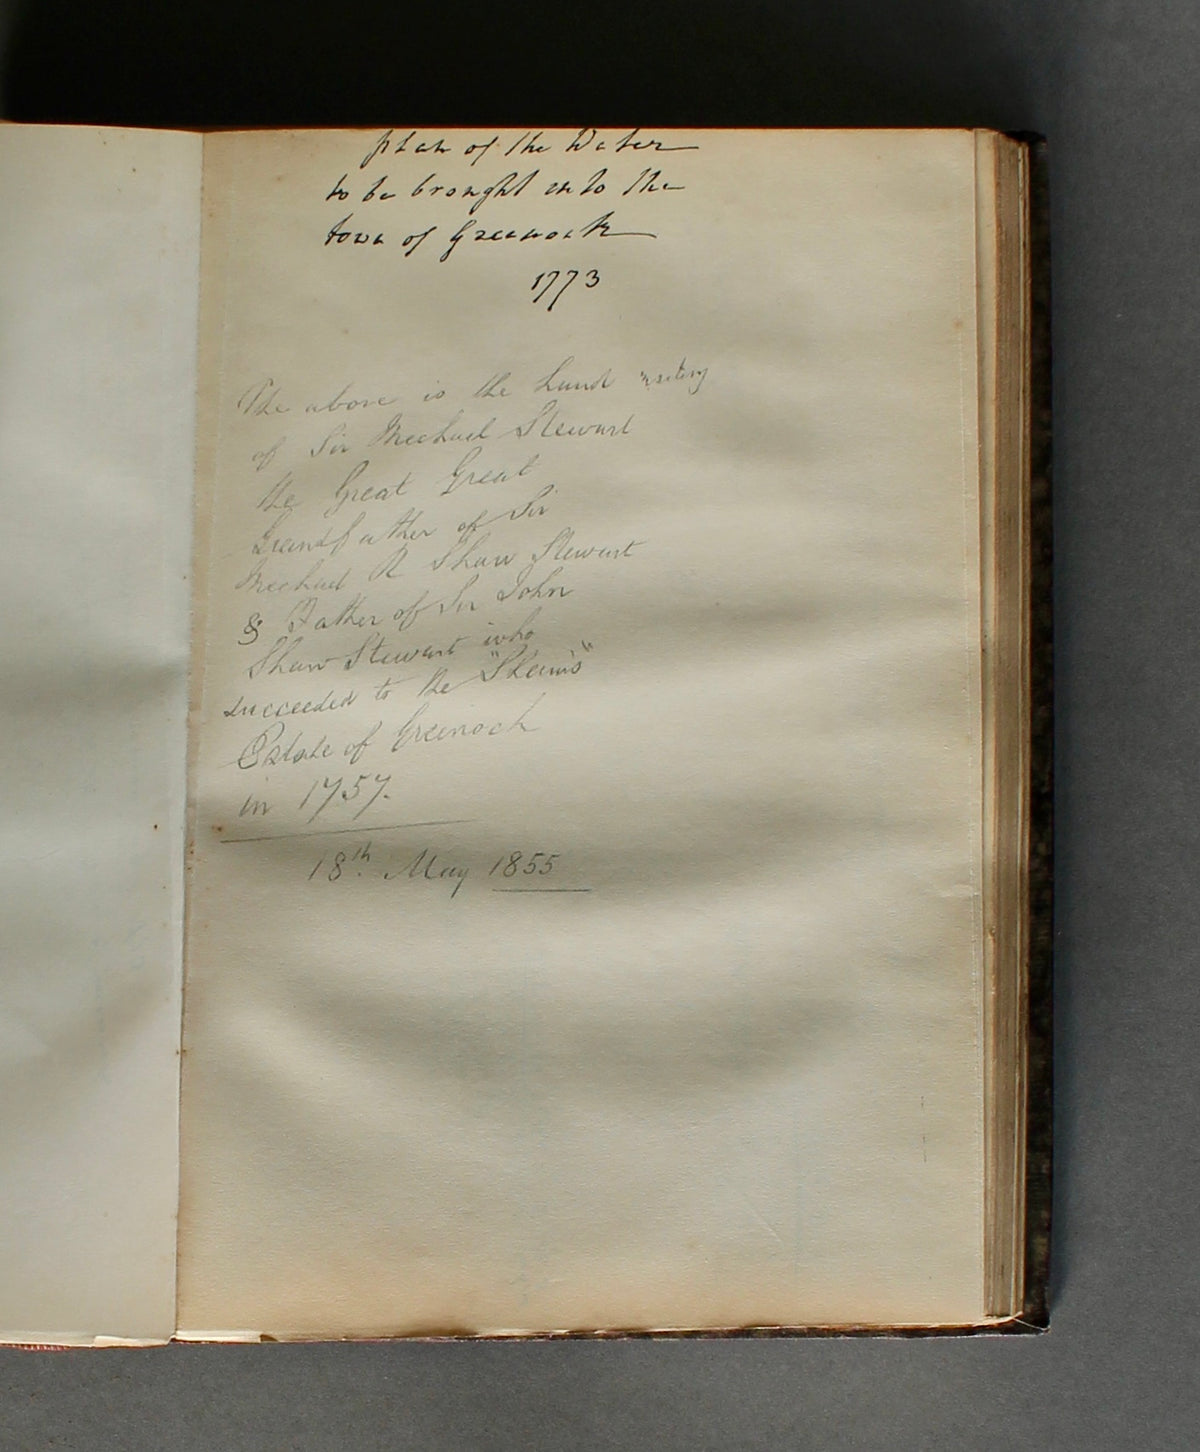 plan of the Water
to be brought into the
town of Greenock
1773
The above is the hand writing
of Sir Michael Stewart
the Great Great
Grandfather of Sir
Michael R Shaw Stewart
& Father of Sir John
Shaw Stewart who
succeeded to the
Estate of Greenock
in 1757.
18th. May 1855